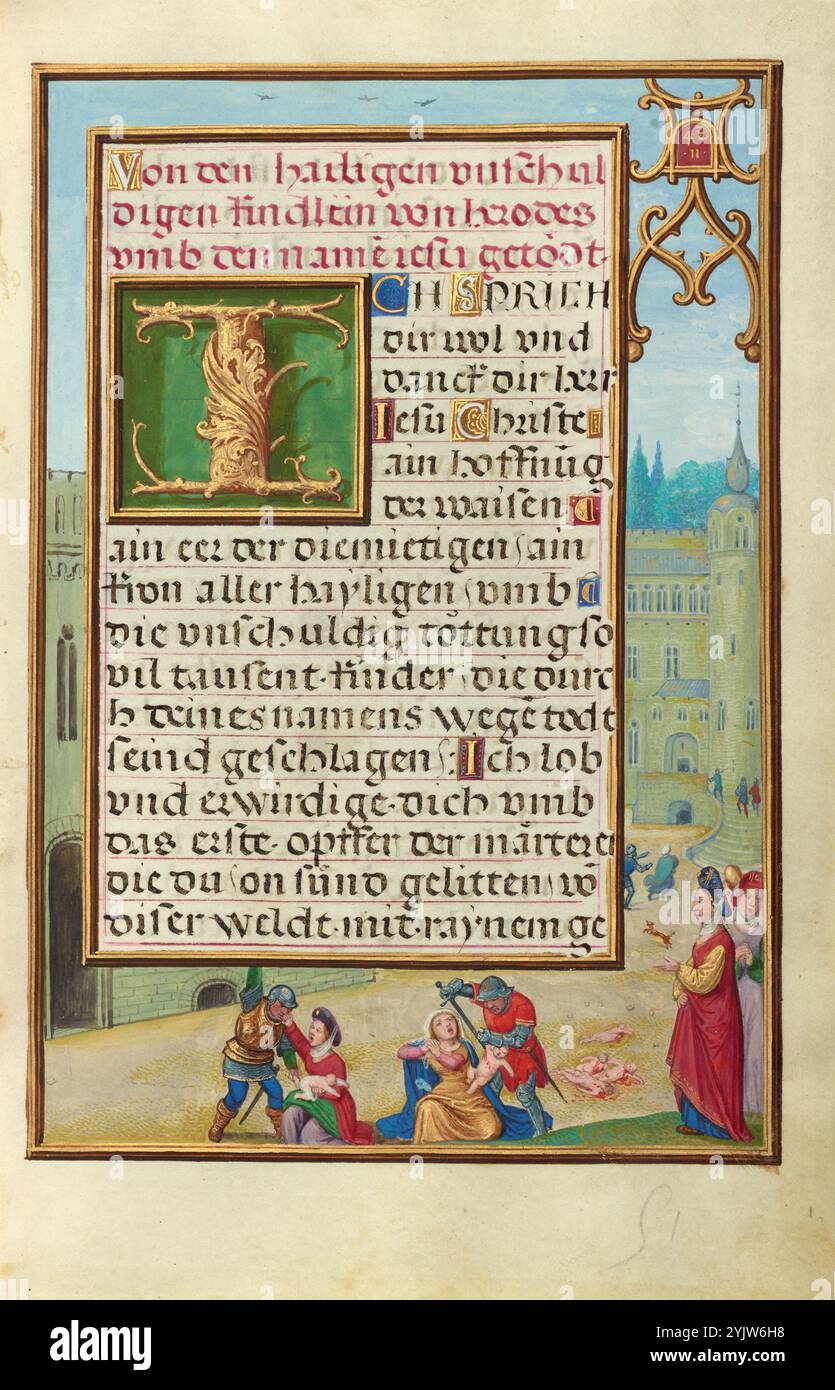 Von den hailigen vnschul
digen kindlein von herodes
vmb den namē iesu getödt·
ICH SPRICH
dir wol vnd
danck dir herr
Iesu Christe
ain hoffnūg
der waisen
ain eer der diemietigen, ain
kron aller hayligen, vmb
die vnschuldig töttung so
vil tausent· kinder, die durc
h deines namens wegē todt
seind geschlagen. Ich lob
vnd erwirdige· dich vmb
das erste· opffer der märterer
die du, on sünd gelitten, vō
diser weldt· mit· raynem ge
51
alamy
Image ID: 2YJW6H8
www.alamy.com